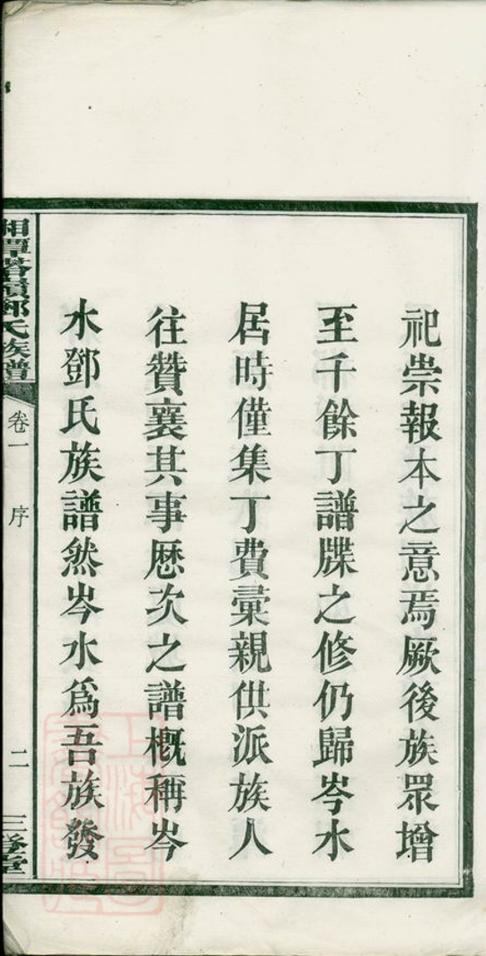 祀崇報本之意焉厥後族眾增
至千餘丁譜牒之修仍歸岑水
居時僅集丁費彙親供派族人
往贊襄其事歷次之譜概稱岑
水鄧氏族譜然岑水為吾族發
湘潭
鄧氏族譜
卷一
序
二
三
堂
上海圖